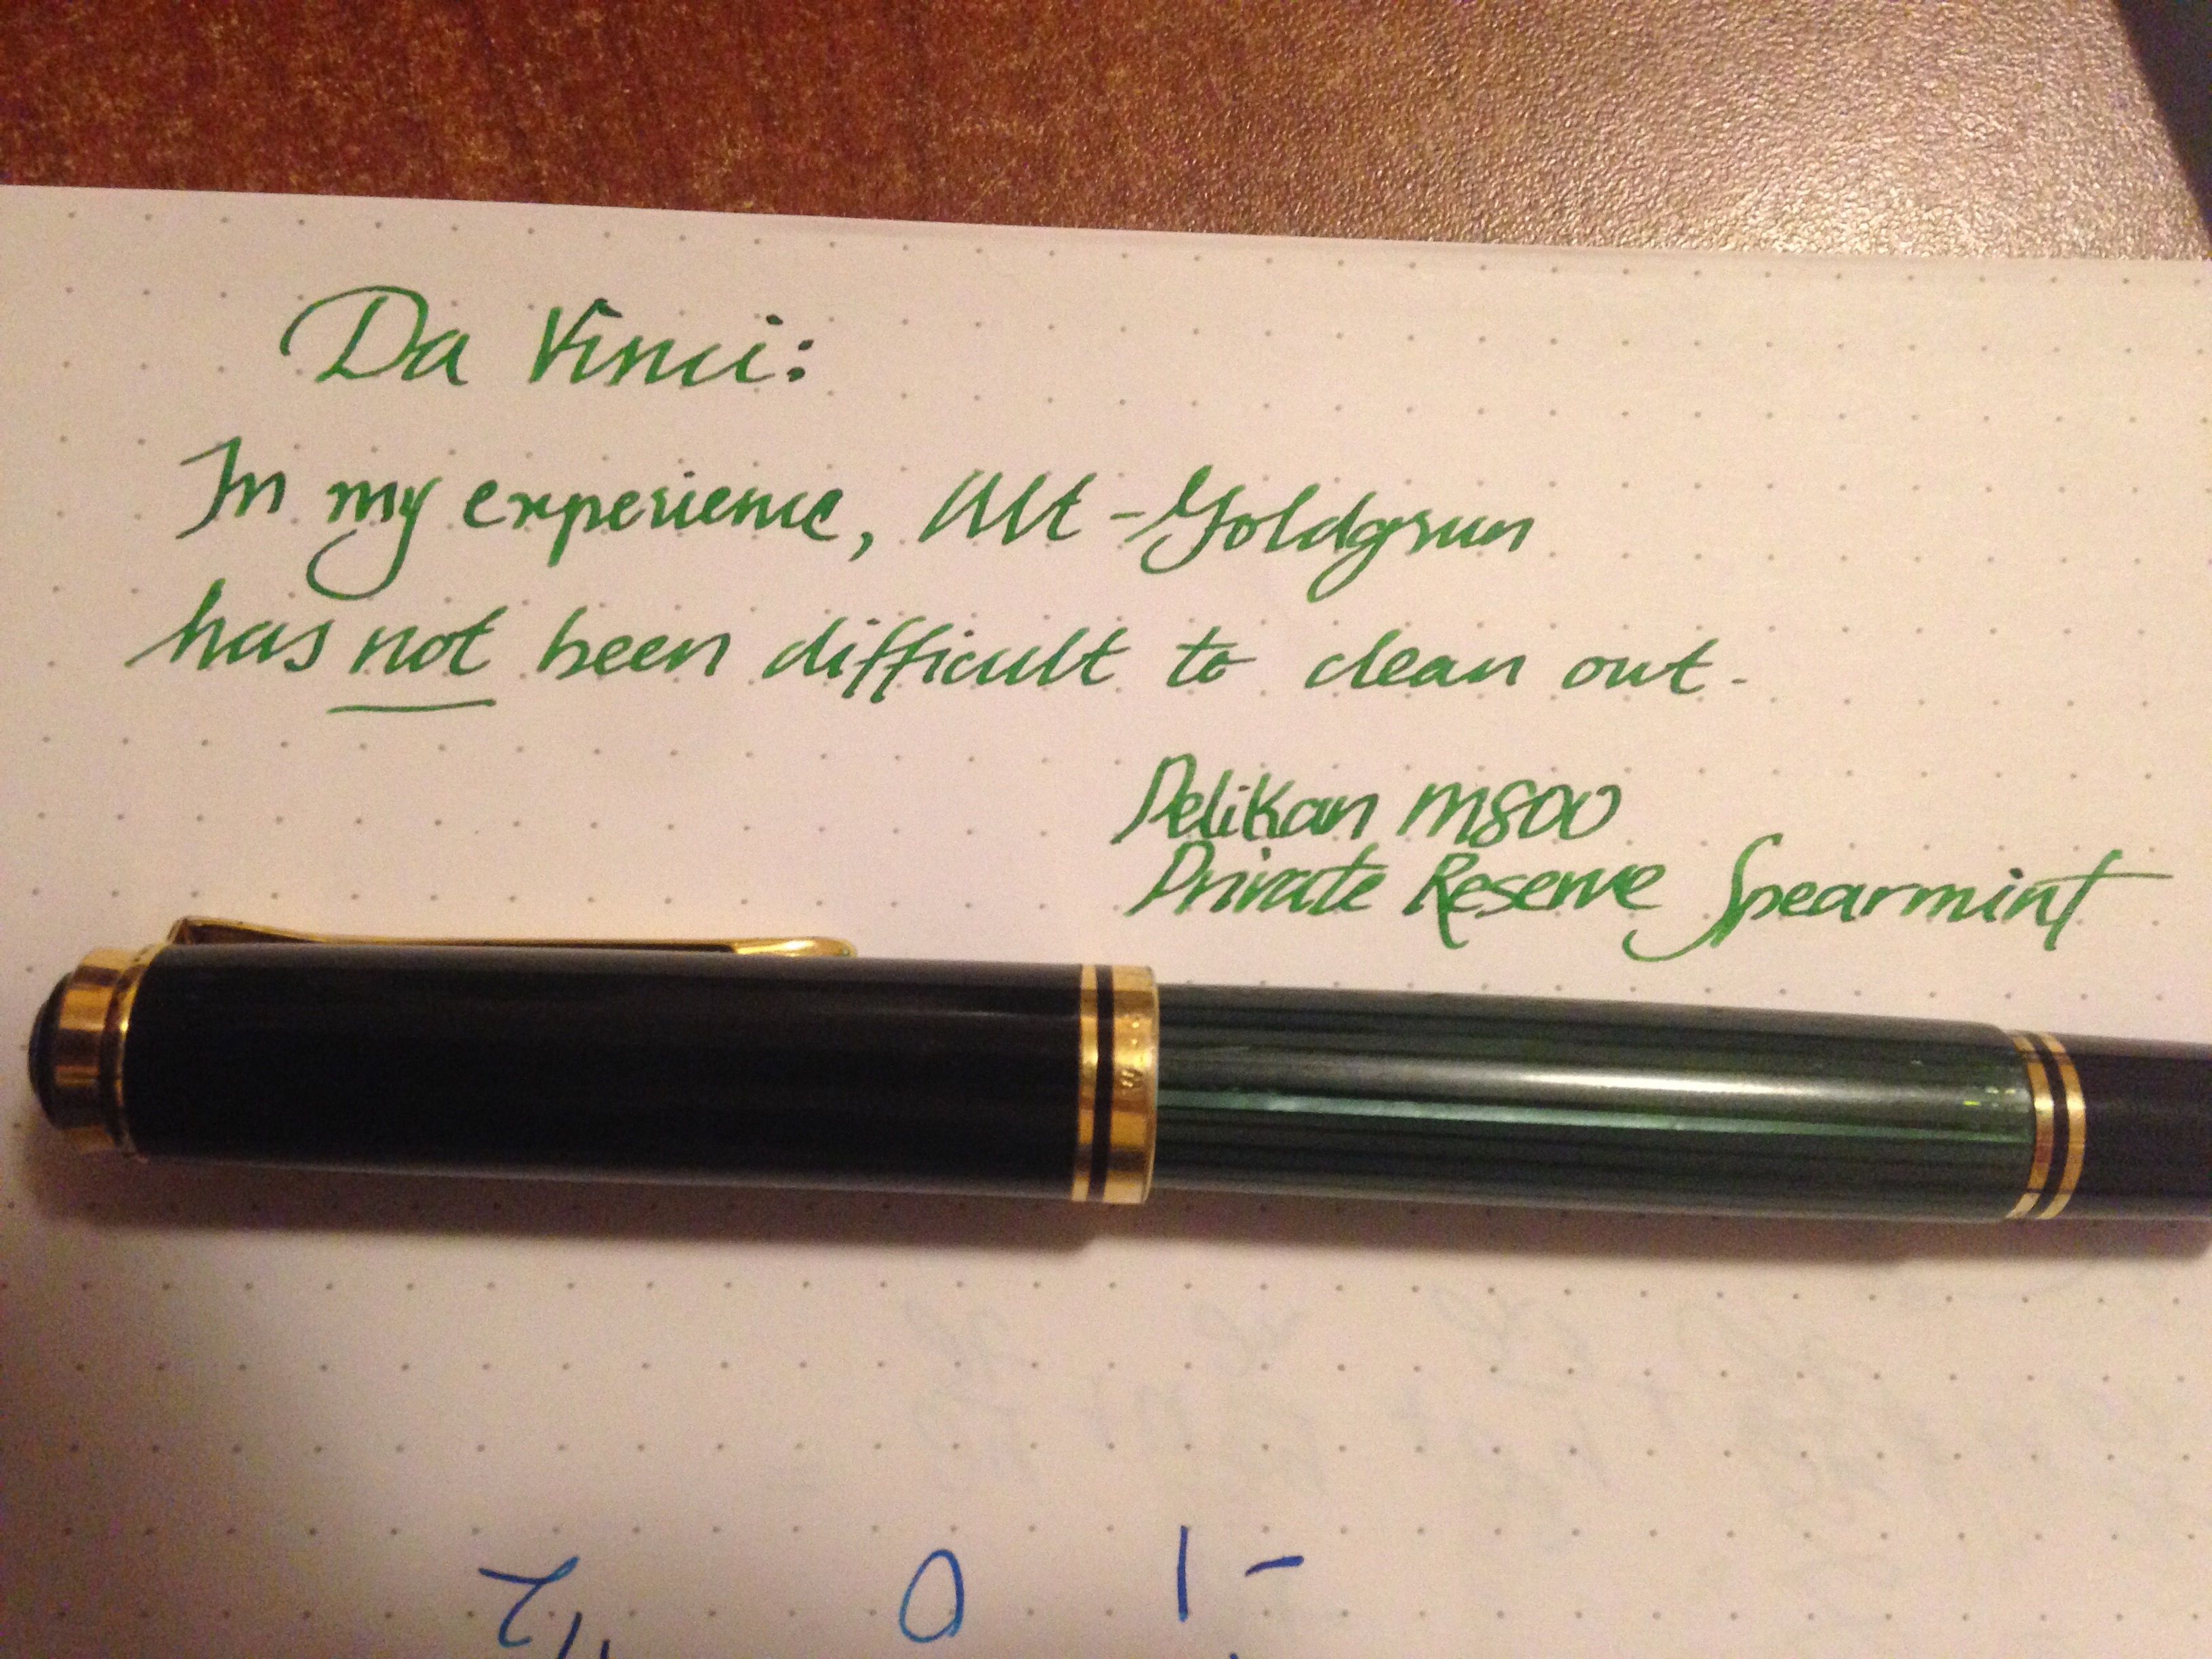 Da Vinci:
In my experience, Alt-Goldgrun
has not been difficult to clean out.
Pelikan M800
Private Reserve Spearmint
- 1 0